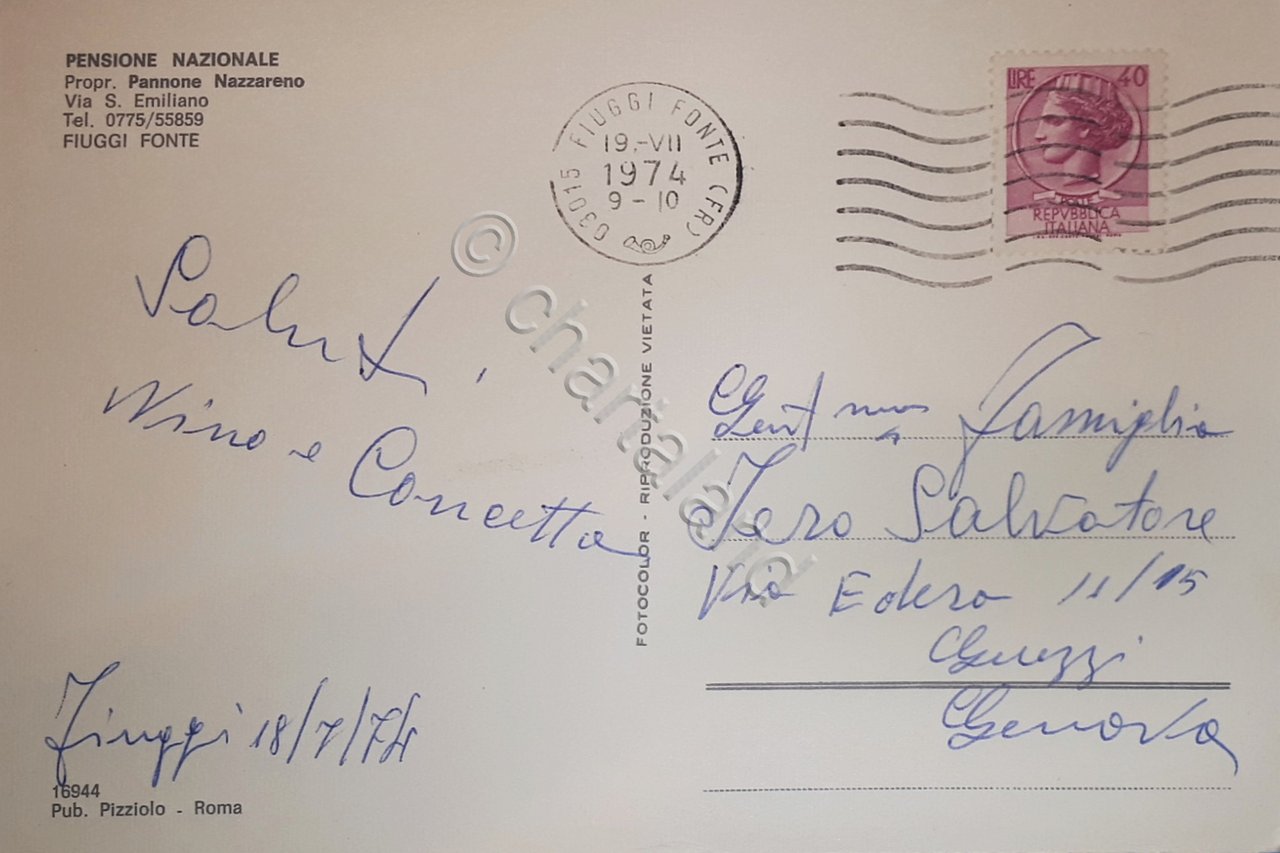 PENSIONE NAZIONALE
Propr. Pannone Nazzareno
Via S. Emiliano
Tel. 0775/55859
FIUGGI FONTE
03015 FIUGGI FONTE (FR)
19.-VII
1974
9-10
LIRE 40
POSTE
REPVBBLICA
ITALIANA
Saluti,
Nino e Concetta
Fiuggi 18/7/74
16944
Pub. Pizziolo - Roma
FOTOCOLOR - RIPRODUZIONE VIETATA
Famiglia
Salvatore
Via Edera 11/15
Genova
© chartaland